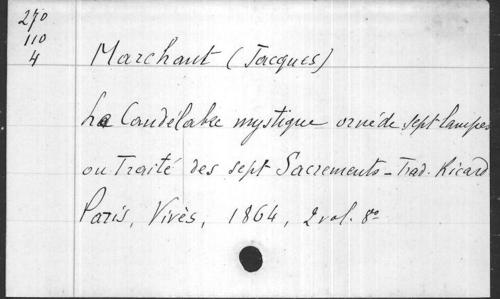 270
110
4
Marchant (Jacques)
Le Candélabre mystique orné de sept lampes
ou Traité des sept Sacrements - Trad. Ricard
Paris, Vivès, 1864, 2 vol. 8º